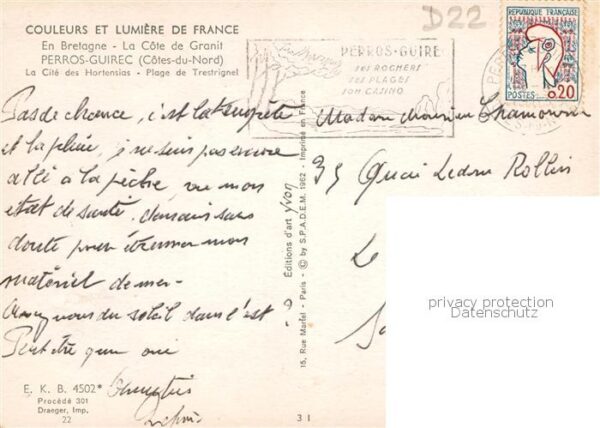 COULEURS ET LUMIÈRE DE FRANCE
En Bretagne - La Côte de Granit
PERROS-GUIREC (Côtes-du-Nord)
La Cité des Hortensias - Plage de Trestrignel
D22
PERROS-GUIREC
SES ROCHERS
SES PLAGES
SON CASINO
REPUBLIQUE FRANÇAISE
POSTES 0,20
Pas de chance, c'est la tempête
et la pluie, je ne suis pas encore
allé à la pêche, vu mon
état de santé, demain sans
doute pour étrenner mon
matériel de mer
Avez vous du soleil dans l'est ?
Peut être que oui
Madame Monsieur
35 Quai Ledru Rollin
Éditions d'art Yvon
15, Rue Martel - Paris - © by S.P.A.D.E.M. 1962 - Imprimé en France
E. K. B. 4502*
Procédé 301
Draeger, Imp.
22
31
privacy protection
Datenschutz